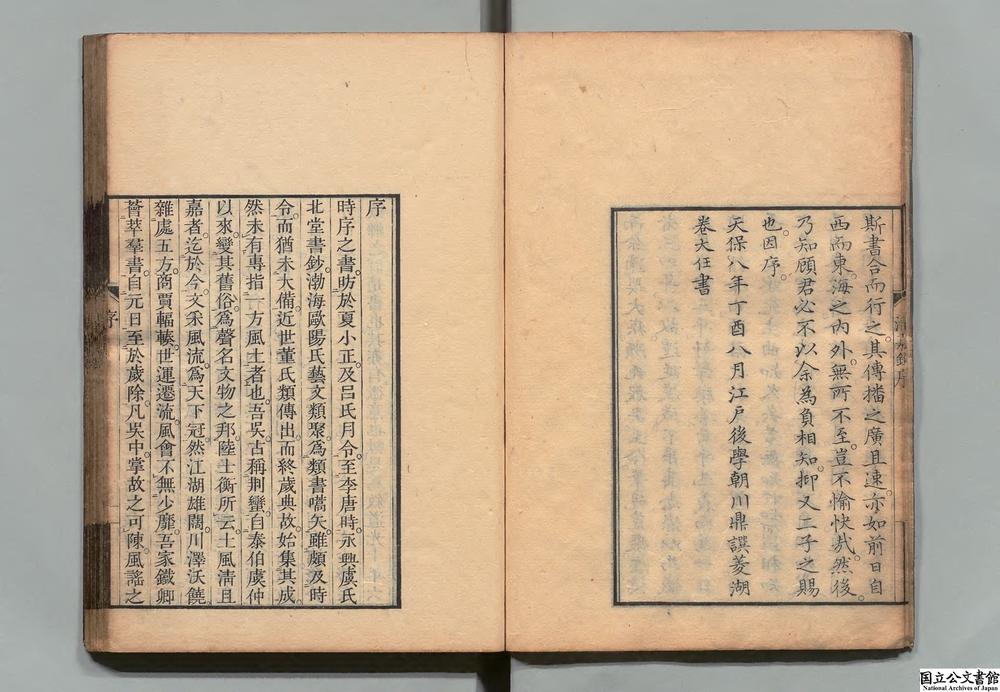 斯書合而行之。其傳播之廣且速。亦如前日自
西而東。海之内外。無所不至。豈不愉快哉。然後
乃知顧君必不以余為負相知。抑又二子之賜
也。因序。
天保八年丁酉八月江戸後學朝川鼎譔菱湖
卷大任書
清嘉錄序
序
時序之書。昉於夏小正。及呂氏月令。至李唐時。永興虞氏
北堂書鈔。渤海歐陽氏藝文類聚。爲類書嚆矢。雖頗及時
令。而猶未大備。近世董氏類傳出。而終歲典故。始集其成。
然未有專指一方風土者也。吾吳古稱荆蠻。自泰伯虞仲
以來。變其舊俗。爲聲名文物之邦。陸士衡所云。土風淸且
嘉者。迄於今。文采風流。爲天下冠。然江湖雄闊。川澤沃饒
雜處五方。商賈輻輳。世運遷流。風會不無少靡。吾家鐵卿
薈萃羣書。自元日至於歲除。凡吳中掌故之可陳。風謠之
序
国立公文書館
National Archives of Japan